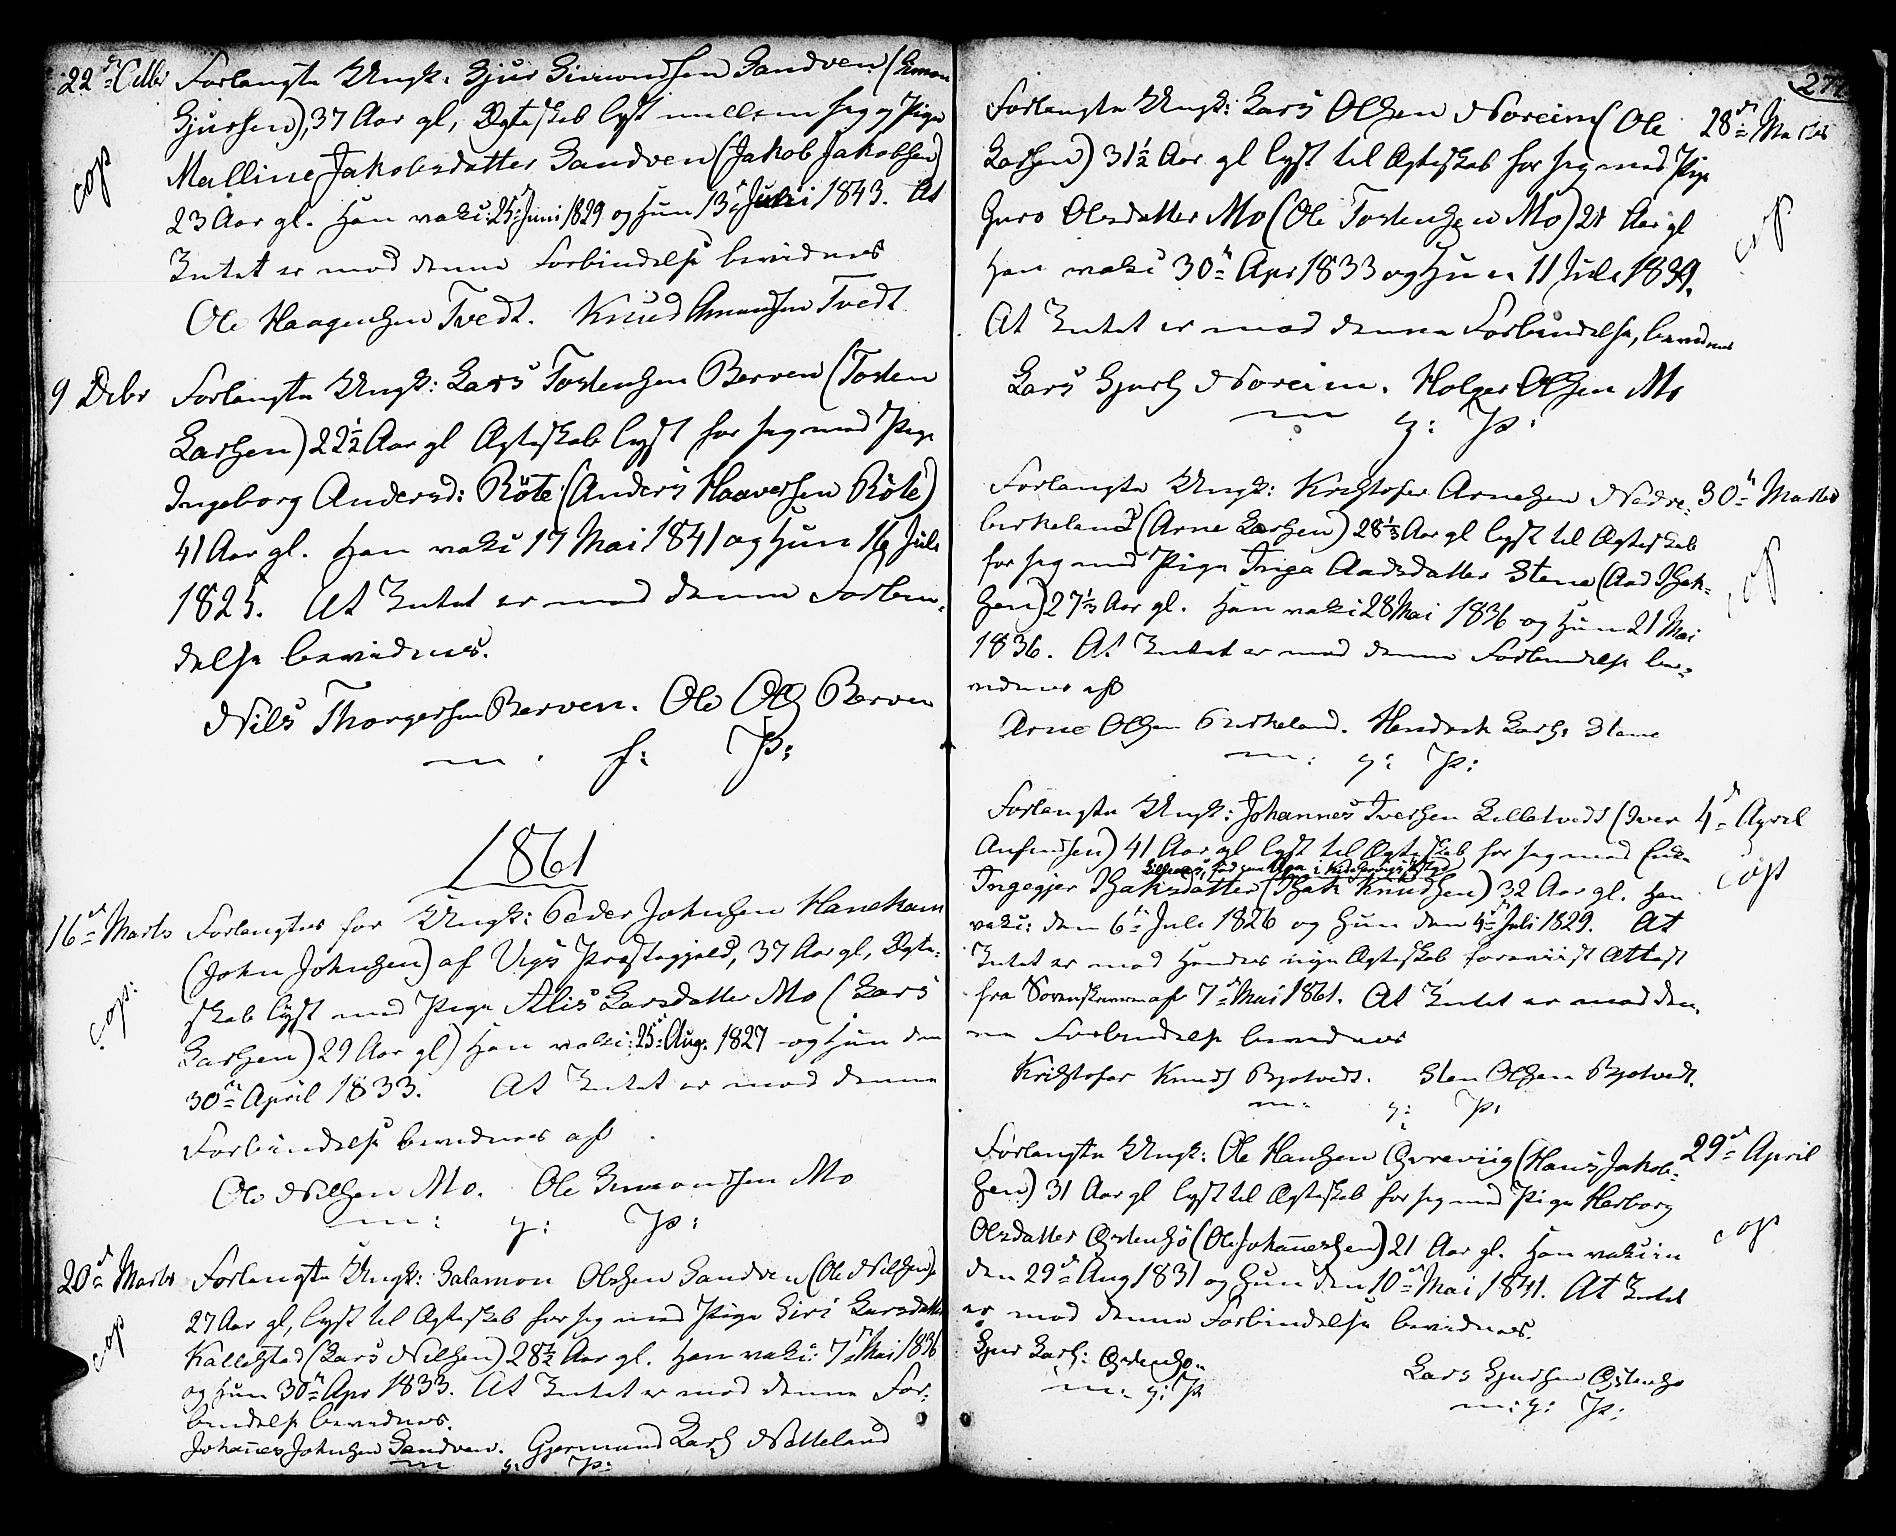 22de Octbr Forlangte Ungk: Sjur Simondsen Sandven (Simon
Sjursen), 37 Aar gl, Ægteskab lyst mellem sig og Pige
cop
Malline Jakobsdatter Sandven (Jakob Jakobsen)
23 Aar gl. Han vakc: 25 Juni 1829 og Hun 13de Juli 1843. At
Intet er mod denne Forbindelse bevidnes
Ole Haagensen Tvedt. Knud Amundsen Tvedt
9 Debr Forlangte Ungk: Lars Tostensen Berven (Tosten
Larsen) 22½ Aar gl Ægteskab lyst for sig med Pige
Ingeborg Andersd: Röte (Anders Haaversen Röte)
41 Aar gl. Han vakc 17 Mai 1841 og Hun 16 Juli
1825. At Intet er mod denne Forbin-
delse bevidnes.
Nils Thorgersen Berven. Ole Ols Berven
m. f: P:
1861
16de Marts Forlangtes for Ungk: Peder Johnsen Hanekam
(John Johnsen) af Vigs Præstegjeld, 37 Aar gl, Ægte-
skab lyst med Pige Alis Larsdatter Mo (Lars
cop:
Larsen) 29 Aar gl) Han vakc: 25 Aug. 1827 og Hun den
30te April 1833. At Intet er mod denne
Forbindelse bevidnes af
Ole Nilsen Mo. Ole Simondsen Mo
m: g: P:
20de Marts Forlangte Ungk: Salamon Olsen Sandven (Ole Nilsen)
27 Aar gl, lyst til Ægteskab for sig med Pige Siri Larsdatter
cop
Kallestad (Lars Nilsen) 28½ Aar gl. Han vakc: 7de Mai 1836
og Hun 30te Apr 1833. At Intet er mod denne For-
bindelse bevidnes.
Johannes Johnsen Sandven. Gjermund Lars Netteland
m g: P:
277
Forlangte Ungk: Lars Olsen Noreim (Ole 28de Marts
Larsen) 31½ Aar gl lyst til Ægteskab for sig med Pige
Guro Olsdatter Mo (Ole Tostensen Mo) 21 Aar gl
cop
Han vakc 30te Apr 1833 og Hun 11 Juli 1839.
At Intet er mod denne Forbindelse, bevidnes
Lars Sjurs Noreim. Holger Olsen Mo
m g: P:
Forlangte Ungk: Kristofer Arnesen Nedre- 30te Marts
birkeland (Arne Larsen) 28⅓ Aar gl lyst til Ægteskab
for sig med Pige Inga Aadsdatter Stene (Aad Isak-
cop
sen) 27⅓ Aar gl. Han vakc 28 Mai 1836 og Hun 21 Mai
1836. At Intet er mod denne Forbindelse be-
vidnes af
Arne Olsen Birkeland. Hendrik Lars: Stene
m: g: P:
Forlangte Ungk: Johannes Iversen Lilletvedt (Iver 4de April
Anfindsen) 41 Aar gl lyst til Ægteskab for sig med Enke
cop
Ingegjer Isaksdatter (Isak Knudsen) 32 Aar gl. Han
vakc: den 6te Juli 1826 og Hun den 4de Juli 1829. At
Intet er mod Hendes nye Ægteskab foreviist Attest
fra Sorenskriveren af 7de Mai 1861. At Intet er mod den-
ne Forbindelse bevidnes
Kristofer Knuds Bjotvedt. Sten Olsen Bjotvedt.
m: g: P:
Forlangte Ungk: Ole Hansen Øvreviig (Hans Jakob- 29de April
sen) 31 Aar gl lyst til Ægteskab for sig med Pige Herborg
Olsdatter Østensö (Ole Johannesen) 21 Aar gl. Han vakcin
cop
den 29de Aug 1831 og Hun den 10de Mai 1841. At Intet
er mod denne Forbindelse bevidnes.
Sjur Lars: Østensö.
m. g: P
Lars Sjursen Østensö
m: g: P: